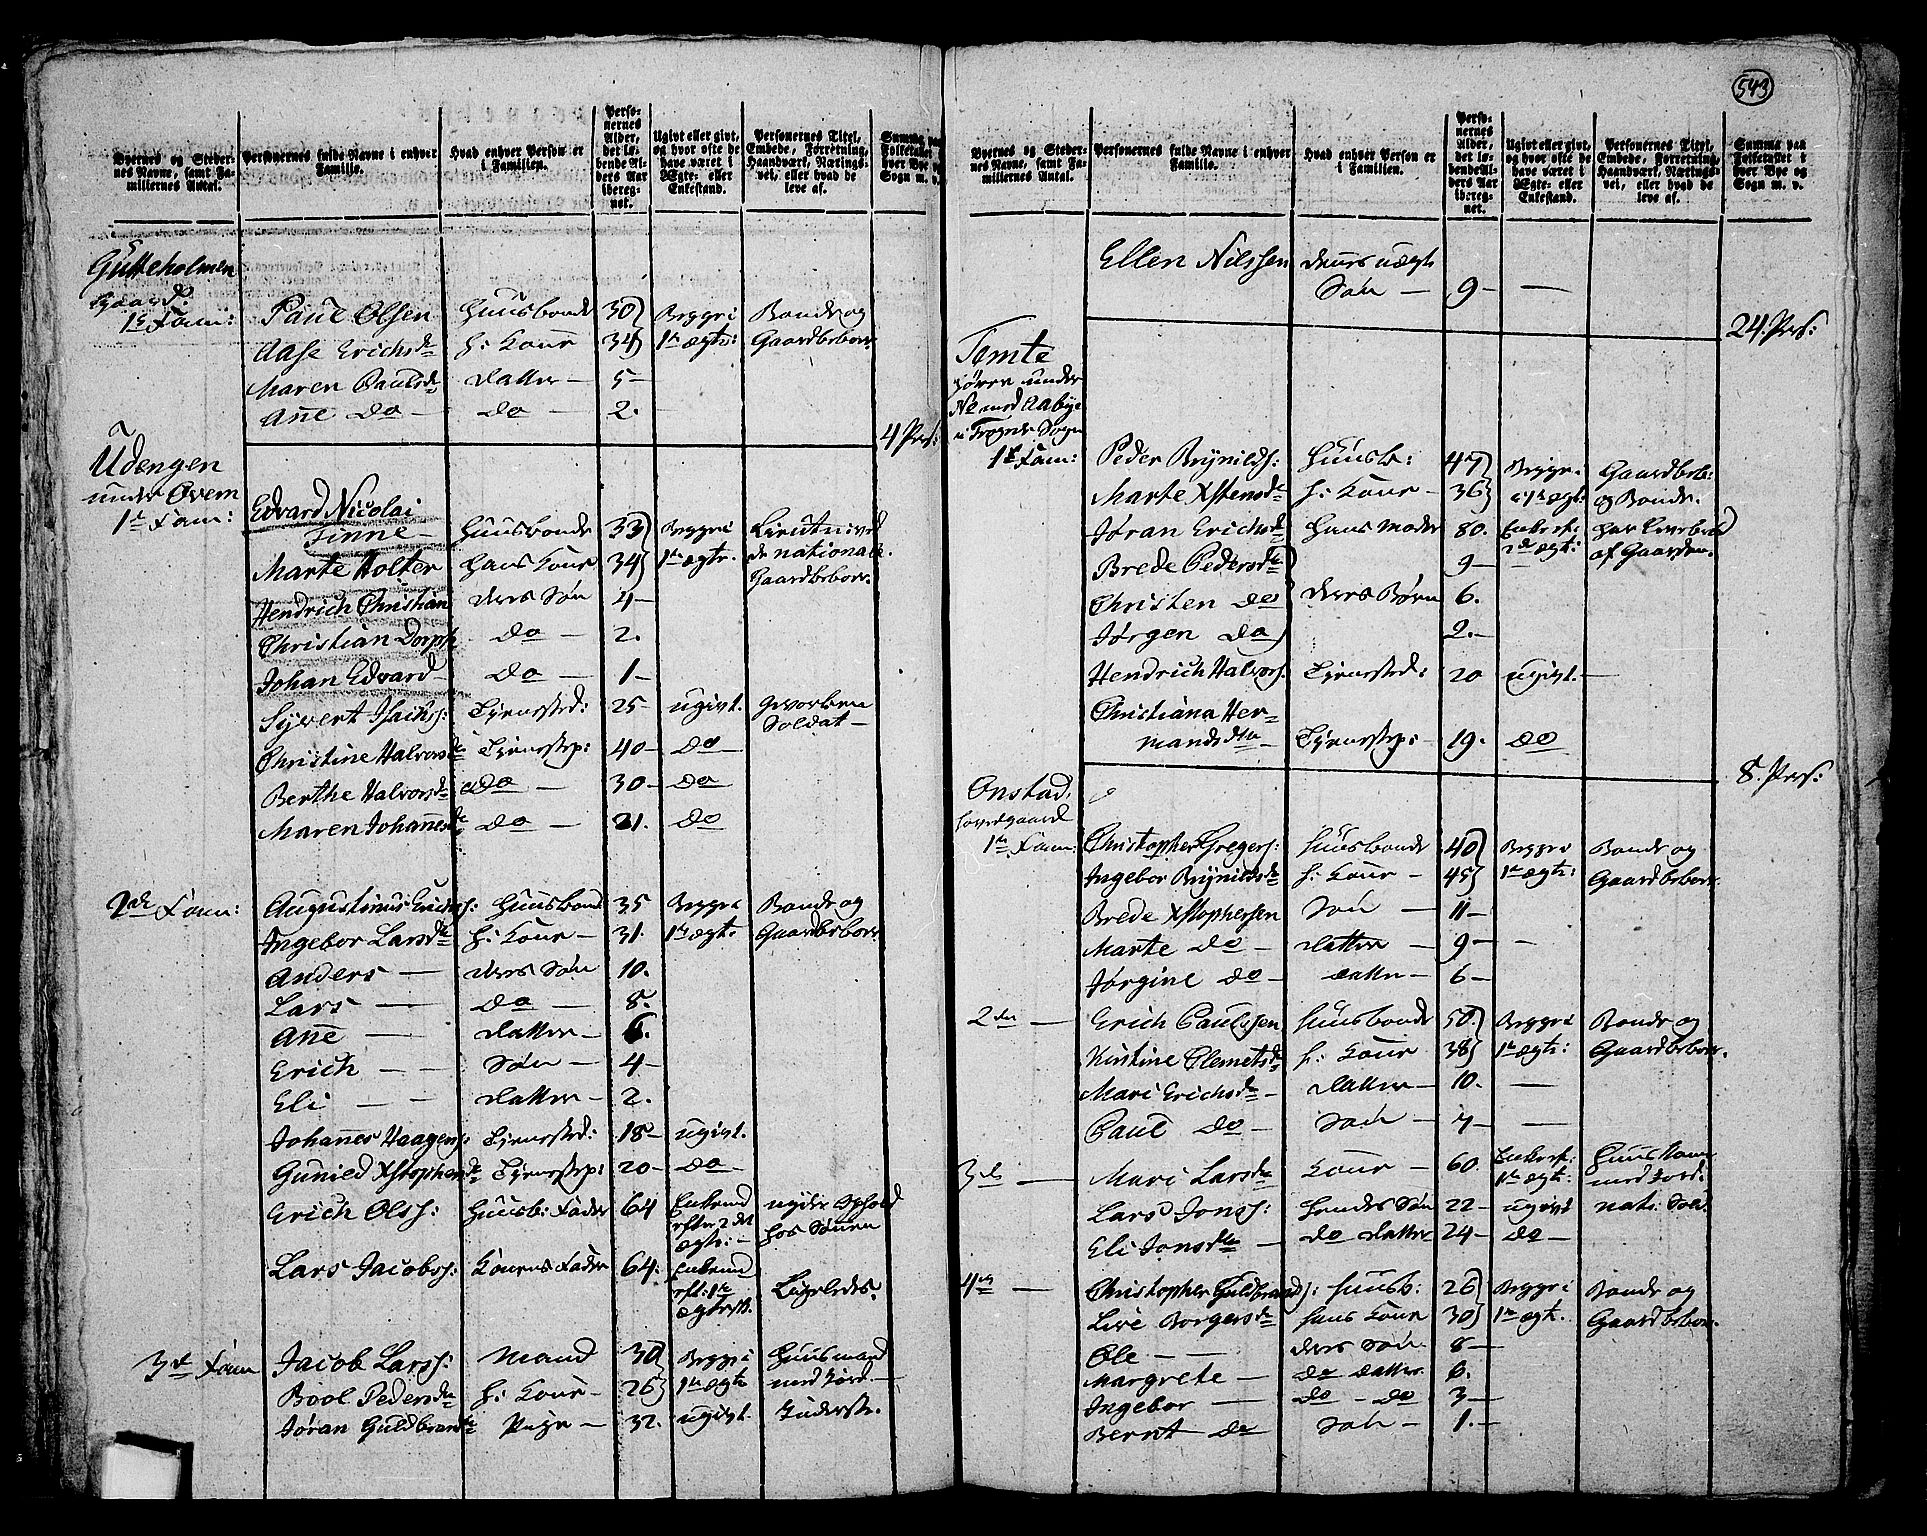 543
Byernes og Steder-
nes Navne, samt Fa-
miliernes Antal.
Personernes fulde Navne i enhver
Familie.
Hvad enhver Person er
i Familien.
Perso-
nernes
Alder,
det lø-
bende Al-
ders Aar
ibereg-
net.
Ugivt eller givt,
og hvor ofte de
have været i
Ægte- eller
Enkestand.
Personernes Titel,
Embede, Forretning,
Haandværk, Nærings-
vei, eller hvad de
leve af.
Summa paa
Folketallet i
hver Bye og
Sogn m. v.
Gutteholmen
gaard.
1e Fam: Paul Olsen Huusbonde 30 Begge i Bonde og
Aase Erichsdr H: Kone 34 1te ægte: Gaardbeboer
Maren Paulsdr Datter 5
Ane do do 2.
4 Pers:
Udengen
under Overn
1te Fam: Edvard Nicolai
Finne Huusbonde 33 Begge i Lieutn: ved
Marte Holter Hans Kone 34 1te ægte. de nationale.
Gaardbeboer.
Hendrich Christian deres Søn 4
Christian Dorph do 2.
Johan Edvard do 1
Syvert Isachs: Tjenested: 25 ugivt. gevorben
Soldat
Christine Halvorsdr Tjenestep: 40 do
Berthe Halvorsdr do 30 do
Maren Johannesdr do 21. do
2de Fam: Augustinus Erichs: Huusbond 35 Begge i Bonde og
Ingebor Larsdr H: Kone 31. 1te ægt. Gaardbeboer.
Anders deres Søn 10.
Lars do 8.
Ane Datter 6.
Erich Søn 4
Eli Datter 2.
Johanes Haagens: Tjenested: 18 ugivt.
Gunild Xstophersdr Tjenestep: 20 do
Erich Ols: Huusb: Fader 64 Enkemd nyder Ophold
efter 2det hos Sønnen
ægte:
Lars Jacobs: Konens Fader 64. Enkemd
eft: 1te Ligeledes.
ægtesk.
3de Fam Jacob Lars: Mand 30 Begge i Huusmand
Boel Pedersdr H: Kone 26 1te ægte med Jord.
Jøran Guldbrandsdr Pige 32. ugivt.
Byernes og Steder-
nes Navne, samt Fa-
miliernes Antal.
Personernes fulde Navne i enhver
Familie.
Hvad enhver Person er
i Familien.
Perso-
nernes
Alder,
det lø-
bende Al-
ders Aar
ibereg-
net.
Ugivt eller givt,
og hvor ofte de
have været i
Ægte- eller
Enkestand.
Personernes Titel,
Embede, Forretning,
Haandværk, Nærings-
vei, eller hvad de
leve af.
Summa paa
Folketallet i
hver Bye og
Sogn m. v.
Ellen Nilssen deres uægte
Søn 9
24. Pers:
Tomte
hører under
No med Aabye
i Frogner Sogn
1te Fam: Peder Brynilds: Huusb: 47 Begge i Gaardbeb:
Marte Xstensdr H: Kone 36 1te ægt. og Bonde.
Jøran Erichsdr Hans Moder 80. Enke ef: har Levebrød
2de ægt: af Gaarden.
Brede Pedersdr 9
Christen do deres Børn 6.
Jørgen do 2.
Hendrich Halvors. Tjenested: 20 ugivt.
Christiana Her-
mandsdtr Tjenestep: 19. do
8. Pers:
Onstad,
hovedgaard
1te Fam: Christopher Gregers: Huusbonde 40 Begge i Bonde og
Ingebor Brynildsdr H: Kone 45 1te ægte: Gaardbeboer.
Brede Xstophersen Søn 11
Marte do Datter 9
Jørgine do Datter 6
2den Erich Paulssen Huusbonde 50. Begge i Bonde og
Kirstine Clemetsdr H: Kone 38 1te ægte: Gaardbeboer.
Mari Erichsdr Datter 10.
Paul do Søn 4
3de Mari Larsdr Kone 60. Enke ef: Huuskone
1te ægte: med Jord.
Lars Jons: Hendes Søn 22 ugivt nat: Sold.
Eli Jonsdr do Datter 24 do
4de Christopher Guldbrands: Huusb: 26 Begge i Bonde og
Live Borgersdr Hans Kone 30 1te ægt. Gaardbeboer
Ole deres Søn 8
Margrete do Datter 6.
Ingebor do do 3
Bernt do Søn 1.